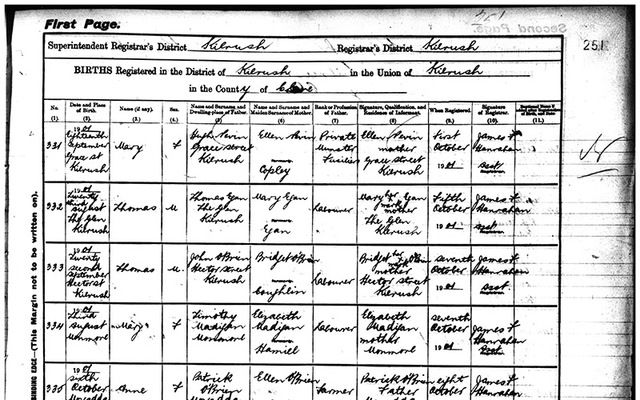 First Page.
251
Superintendent Registrar's District Kilrush Registrar's District Kilrush
BIRTHS Registered in the District of Kilrush in the Union of Kilrush
in the County of Clare
No. Date and Place of Birth. Name (if any). Sex. Name and Surname and Dwelling-place of Father. Name and Surname and Maiden Surname of Mother. Rank or Profession of Father. Signature, Qualification, and Residence of Informant. When Registered. Signature of Registrar.
(1). (2). (3). (4). (5) (6) (7) (8) (9.) (10.) (11.)
331 1901 Eighteenth September Grace St Kilrush Mary F Hugh Nevin Grace street Kilrush Ellen Nevin Copley Private Munster Fusiliers Ellen Nevin mother Grace street Kilrush First October 1901 James F Hanrahan
332 1901 Twenty third August The Glen Kilrush Thomas M Thomas Egan The Glen Kilrush Mary Egan Egan Labourer Mary her mark Egan mother The Glen Kilrush Fifth October 1901 James F Hanrahan
333 1901 Twenty second September Hector St Kilrush Thomas M John O'Brien Hector street Kilrush Bridget O'Brien Coughlin Labourer Bridget her O'Brien mother Hector street Kilrush seventh October 1901 James F Hanrahan
334 1901 Third August Monmore Mary F Timothy Madigan Monmore Elizabeth Madigan Hamill Labourer Elizabeth Madigan mother Monmore seventh October 1901 James F Hanrahan
335 1901 sixth October Anne F Patrick O'Brien Ellen O'Brien Farmer Patrick O'Brien Father eight October James F Hanrahan
BINDING EDGE—(This Margin not to be written on).